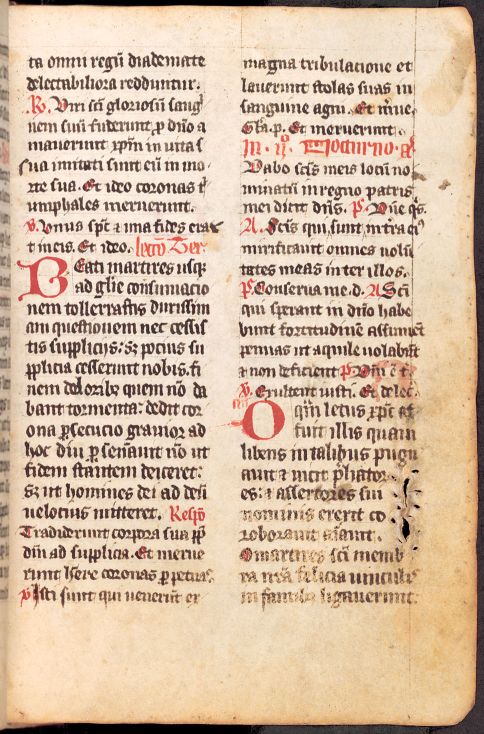 ta omni regū diademate
delectabiliora redduntur.
R. Viri sci gloriosū sang
nem suū fuderunt p dño a
mauerunt xpm in uita s
sua imitati sunt eū in mo
rte sua. Et ideo coronas t
umphales meruerunt.
V. Vnus spc ⁊ una fides erat
t in eis. Et ideo. lectō Ter
Beati martires usq
ad glie consumacio
nem tollerastis durissim
am questionem nec cessis
tis supplicijs: sz pocius su
pplicia cesserunt nobis. fi
nem dolorib; quem nō da
bant tormenta: dedit cor
ona psecucio grauior ad
hoc diu pseuauit nō ut
fidem stantem deiceret:
sz ut homines dei ad deū
uelocius mitteret. Respō
Tradiderunt corpora sua pp
dm ad supplicia. Et merue
runt h̄ere coronas ppetuas
V Isti sunt qui uenerūt ex
magna tribulacione et
lauerunt stolas suas in
sanguine agni. Et mue
Gla. p. Et meruerunt.
In. iijo. Nocturno. a
Dabo scis meis locū no
minatū in regno patris
mei dicit dñs. ps. Dñe qs.
A. Scis qui sunt in tra ei
mirificauit omnes uolū
tates meas inter illos.
ps Conserua me. d. A Sci
qui sperant in dño habe
bunt fortitudinē assument
pennas ut aquile uolabūt
⁊ non deficient ps Dñi ē t.
V. Exultent iusti. Et delec
O qm letus xpc af
fuit illis quam
libens in talibus pugn
auit ⁊ uicit pliator
es: ⁊ assertores sui
nominis erexit co
roborauit aiauit.
O martires sci memb
ra nra felicia uinculis
in famila ligauerunt.